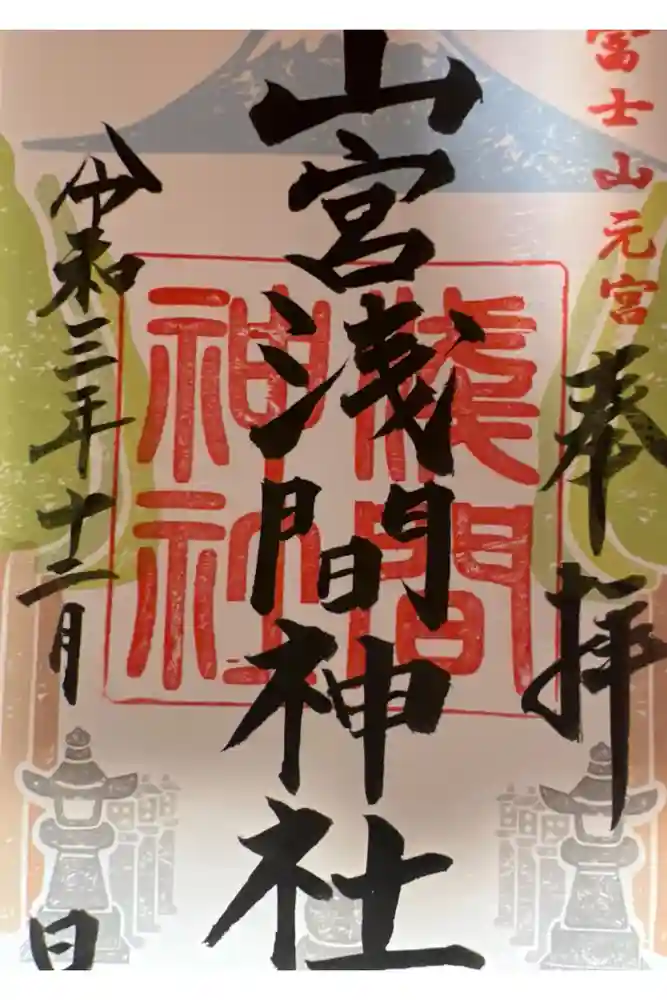 富士山元宮
奉拝
山宮浅間神社
浅間
神社
令和三年十二月
日